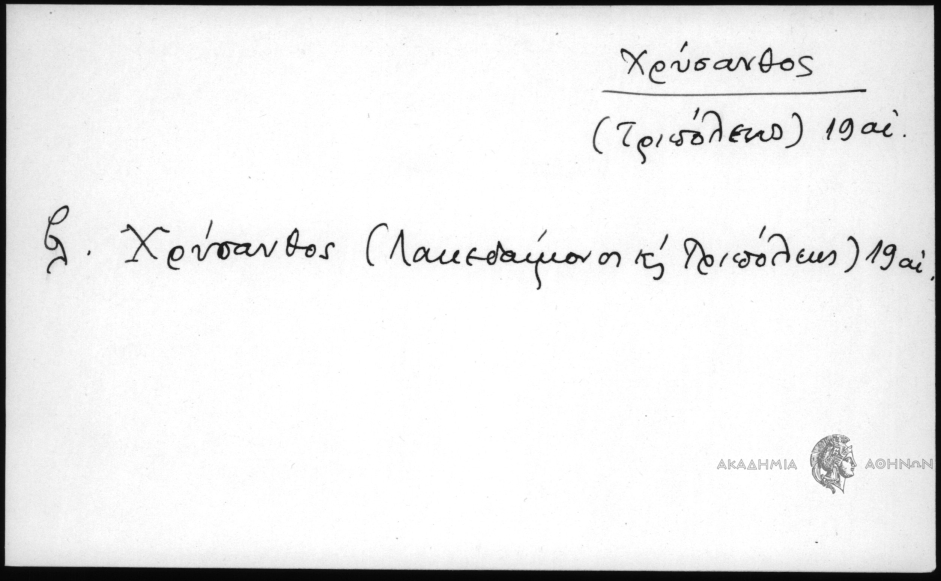 Χρύσανθος
(Τριπόλεως) 19 αἰ.
βλ. Χρύσανθος (Λακεδαίμονος κ' Τριπόλεως) 19 αἰ.
ΑΚΑΔΗΜΙΑ ΑΘΗΝΩΝ